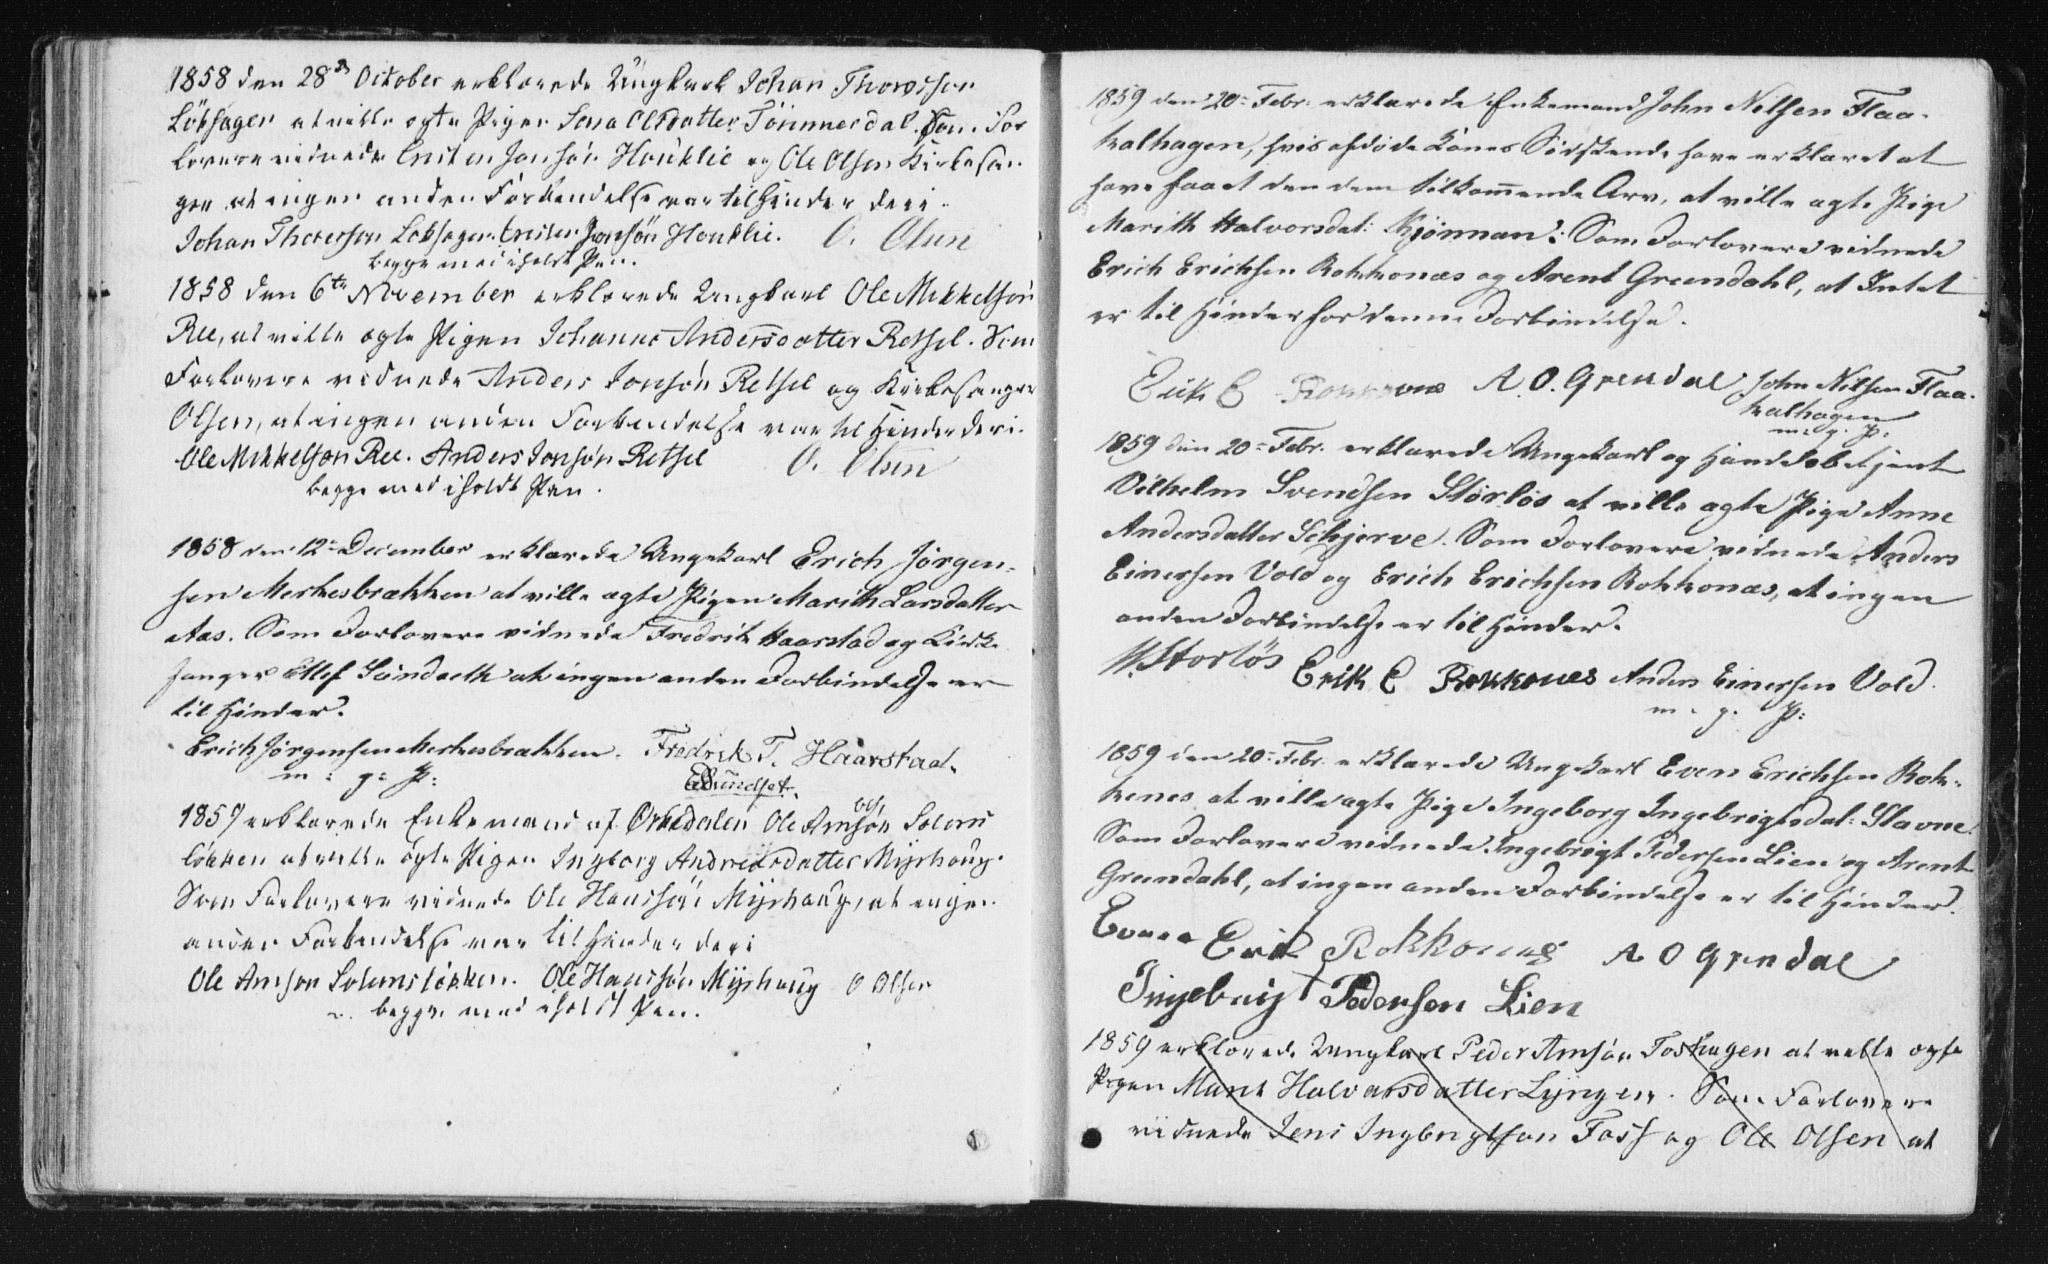 1858 den 28de October erklærede Ungkarl Johan Thoresson
Løbsager at ville ægte Pigen Olsdatter Tønmerdal. Som For
lovere vidnede Cristen Jonsön Houklie og Ole Olsen Kirkesan
ger at ingen anden Forbendelse var til Hinder deri.
Johan Thoresson Løbsagen. Cristen Jonsön Houklie. O. Olsen
begge med iholdt Pen.
1858 den 6te November erklærede Ungkarl Ole Mikkelsön
Ree, at ville ægte Pigen Johanna Andersdatter Retsel. Som
Forlovere vidnede Anders Jonsön Retsel og Kirkesanger
Olsen, at ingen anden Forbendelse var til Hinder deri.
Ole Mikkelson Ree. Anders Jonsön Retsel O. Olsen
begge med iholdt Pen.
1858 den 12= December erklærede Ungekarl Erich Jörgen-
sen Merkesbrækken at ville ægte Pigen Marith Larsdatter
Aas. Som Forlovere vidnede Fredrik Haarstad og Kirke
sanger Ellef Sundseth at ingen anden Forbindelse er
til Hinder.
Erich Jörgensen Merkesbrækken. Fredrek T. Haarstad.
m: g: P: ESundset.
1859 erklærede Enkemand af Orkedalen Ole Amsön Solems
løkken at ville ægte Pigen Ingborg Andreasdatter Myrhoug.
Som Forlovere vidnede Ole Hanssön Myrhaug, at ingen
anden Forbendelse var til Hinder deri
Ole Amson Solemsløkken. Ole Hanssön Myrhoug O Olsen
begge med iholdt Pen.
1859 den 20= Febr. erklærede Enkemand John Nilsen Flaa-
kalhagen, hvis afdöde Kones Södskende have erklæret at
have faaet den dem tilkommende Arv, at ville ægte Pige
Marith Halvorsdat: Kjönman: Som Forlovere vidnede
Erich Erichsen Rokkonæs og Arent Greendahl, at Intet
er til Hinder for denne Forbindelse.
Erik E Rokkones A. O. Grendal John Nilsen Flaa-
kalhagen
m: g. P:
1859 den 20= Febr. erklærede Ungekarl og Handelsbetjent
Vilhelm Svendsen Storløs at ville ægte Pige Anne
Andersdatter Schjerve. Som Forlovere vidnede Anders
Einersen Vold og Erich Erichsen Rokkonæs, at ingen
anden Forbindelse er til Hinder.
W. Storlös Erik E Rokkones Anders Einersen Vold.
m. g. P:
1859 den 20= Febr. erklærede Ungekarl Even Erichsen Rok-
kenes at ville ægte Pige Ingeborg Ingebrigtsdat: Stavne.
Som Forlovere vidnede Ingebrigt Pedersen Lien og Arent
Greendahl, at ingen anden Forbindelse er til Hinder.
Even Erik Rokkones A O Grendal
Ingebrigt Pedersen Lien
1859 erklærede Ungkarl Peder Amsön Foshagen at ville ægte
Pigen Marit Halvorsdatter Lyngen. Som Forlovere
vidnede Jens Ingbrigtson Foss og Ole Olsen at